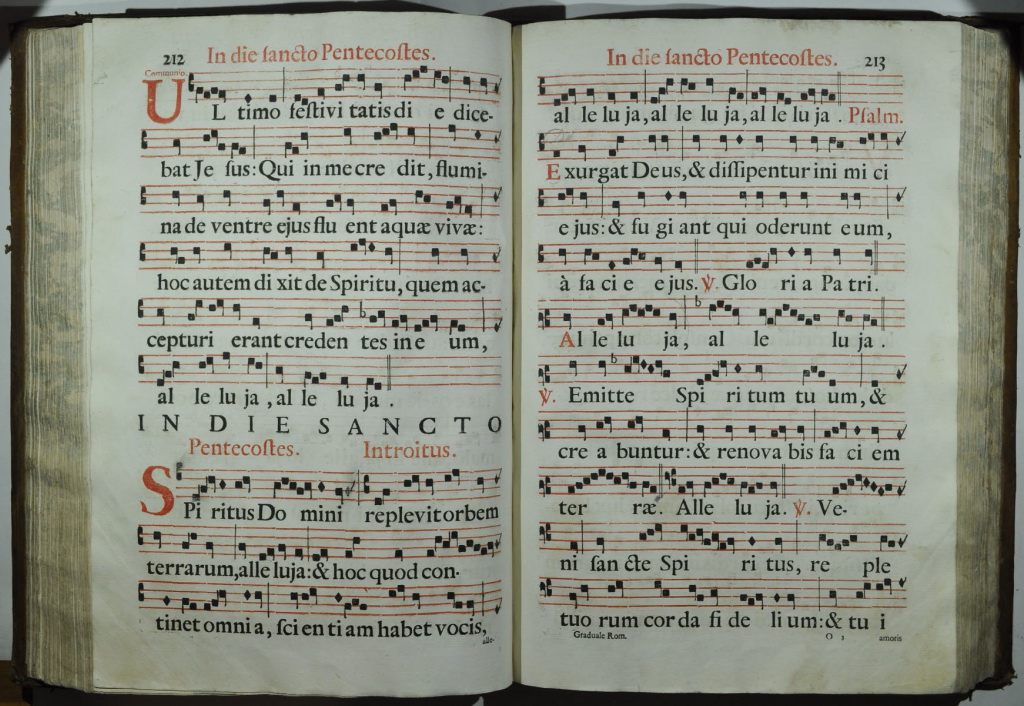 212 In die sancto Pentecostes.
Communio.
UL timo festivi tatis di e dice-
bat Je sus: Qui in me cre dit, flumi-
na de ventre ejus flu ent aquæ vivæ:
hoc autem di xit de Spiritu, quem ac-
cepturi erant creden tes in e um,
al le lu ja, al le lu ja.
IN DIE SANCTO
Pentecostes. Introitus.
SPi ritus Do mini replevit orbem
terrarum, alle luja: & hoc quod con-
tinet omni a, sci en ti am habet vocis,
alle-
In die sancto Pentecostes. 213
al le lu ja, al le lu ja, al le lu ja. Psalm.
Exurgat Deus, & dissipentur ini mi ci
e jus: & fu gi ant qui oderunt eum,
à fa ci e e jus. ℣. Glo ri a Pa tri.
Al le lu ja, al le lu ja.
℣. Emitte Spi ri tum tu um, &
cre a buntur: & renova bis fa ci em
ter ræ. Alle lu ja. ℣. Ve-
ni san cte Spi ri tus, re ple
tuo rum cor da fi de li um: & tu i
Graduale Rom. O 3 amoris